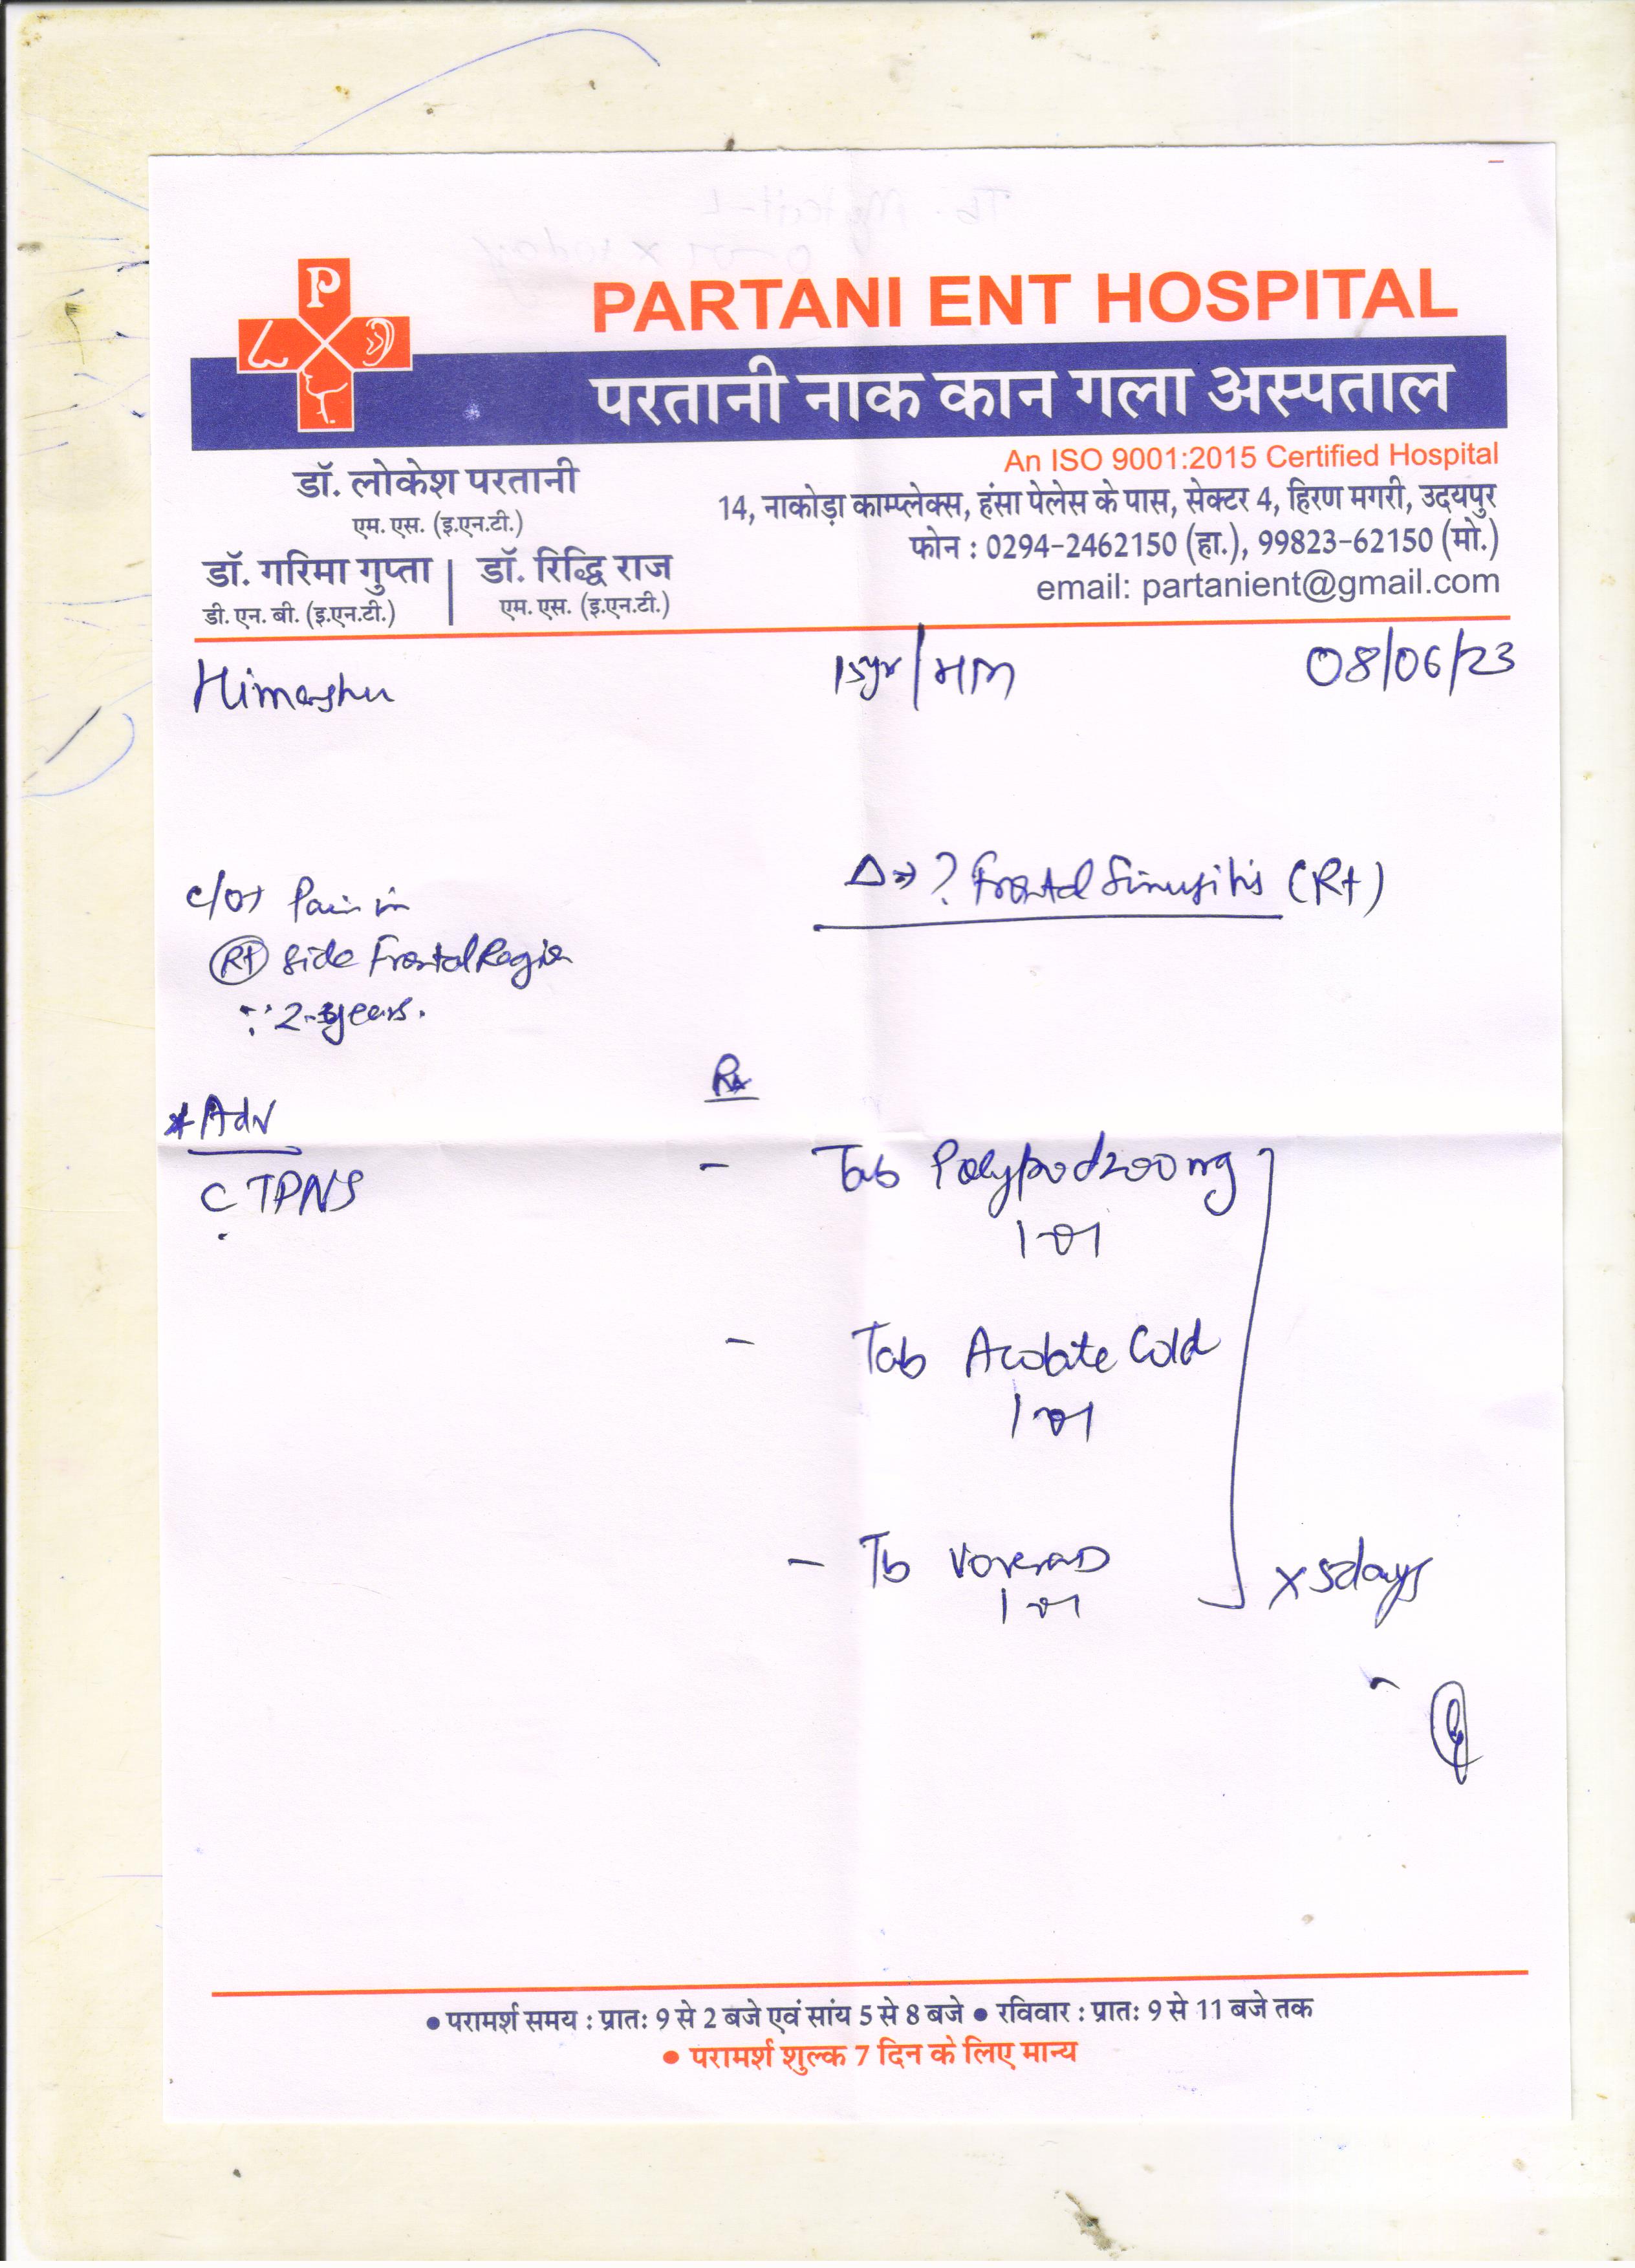 P
PARTANI ENT HOSPITAL
परतानी नाक कान गला अस्पताल
An ISO 9001:2015 Certified Hospital
14, नाकोड़ा काम्प्लेक्स, हंसा पेलेस के पास, सेक्टर 4, हिरण मगरी, उदयपुर
फोन : 0294-2462150 (हा.), 99823-62150 (मो.)
email: partanient@gmail.com
डॉ. लोकेश परतानी
एम. एस. (इ.एन.टी.)
डॉ. गरिमा गुप्ता | डॉ. रिद्धि राज
डी. एन. बी. (इ.एन.टी.) एम. एस. (इ.एन.टी.)
Himanshu 15yr/ 08/06/23
Δ⇒ ? Frontal Sinusitis (Rt)
c/o Pain in
Rt side Frontal Region
2-3years.
*Adv
CTPNS
Rx
- Tab Polypod 200mg
1-0-1
- Tab Acolate Cold
1-0-1
- Tb Voveran D
1-0-1
x 5days
• परामर्श समय : प्रातः 9 से 2 बजे एवं सांय 5 से 8 बजे • रविवार : प्रातः 9 से 11 बजे तक
• परामर्श शुल्क 7 दिन के लिए मान्य